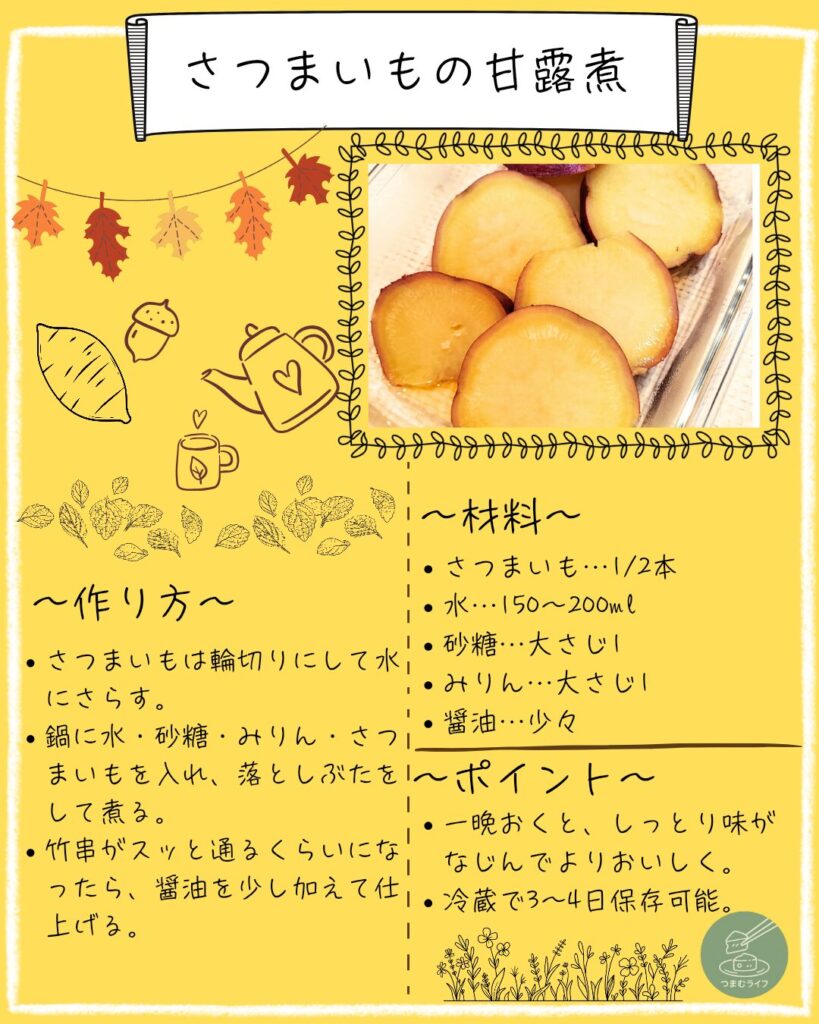 さつまいもの甘露煮
〜材料〜
• さつまいも…1/2本
• 水…150〜200ml
• 砂糖…大さじ1
• みりん…大さじ1
• 醤油…少々
〜作り方〜
• さつまいもは輪切りにして水
にさらす。
• 鍋に水・砂糖・みりん・さつ
まいもを入れ、落としぶたを
して煮る。
• 竹串がスッと通るくらいにな
ったら、醤油を少し加えて仕
上げる。
〜ポイント〜
• 一晩おくと、しっとり味が
なじんでよりおいしく。
• 冷蔵で3〜4日保存可能。
つまむライフ